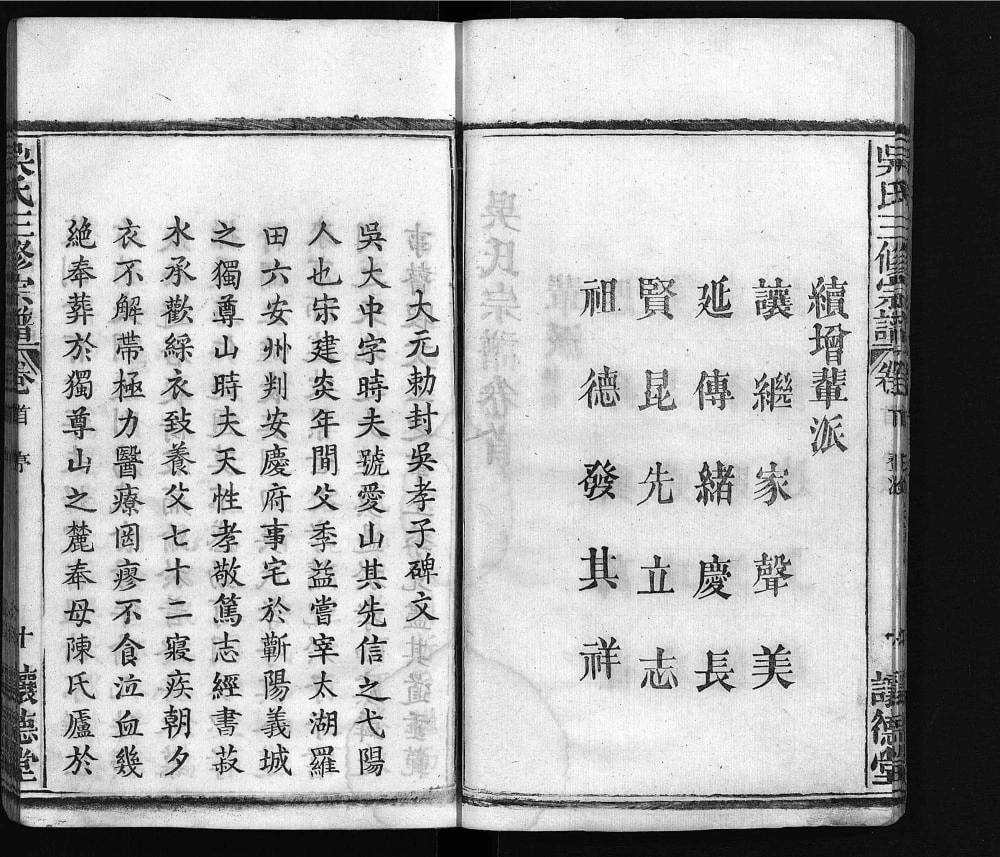 吳氏三修宗譜
卷首
讓德堂
續增輩派
讓繼家聲美
延傳緒慶長
賢昆先立志
祖德發其祥
大元勅封吳孝子碑文
吳大中字時夫號愛山其先信之弋陽
人也宋建炎年間父季益嘗宰太湖羅
田六安州判安慶府事宅於蘄陽義城
之獨尊山時夫天性孝敬篤志經書菽
水承歡綵衣致養父七十二寢疾朝夕
衣不解帶極力醫療罔瘳不食泣血幾
絶奉葬於獨尊山之麓奉母陳氏廬於
吳氏三修宗譜
卷首
十
讓德堂